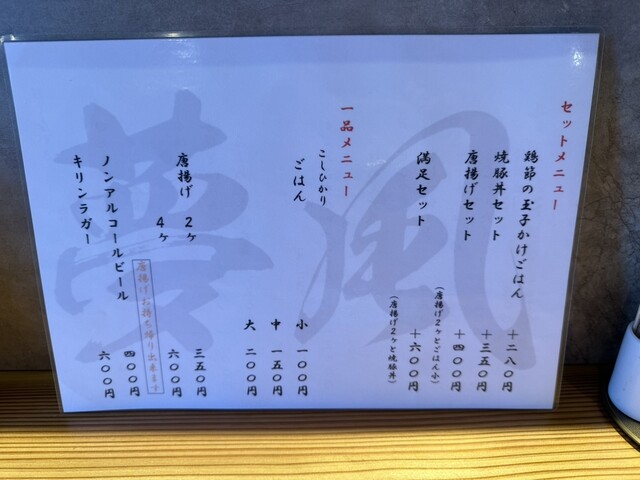 セットメニュー
鶏節の玉子かけごはん +二八〇円
焼豚丼セット +三五〇円
唐揚げセット +四〇〇円
(唐揚げ2ヶとごはん小)
満足セット +六〇〇円
(唐揚げ2ヶと焼豚丼)
一品メニュー
こしひかり
ごはん 小 一〇〇円
中 一五〇円
大 二〇〇円
唐揚げ 2ヶ 三五〇円
4ヶ 六〇〇円
唐揚げお持ち帰り出来ます
ノンアルコールビール 四〇〇円
キリンラガー 六〇〇円
風夢